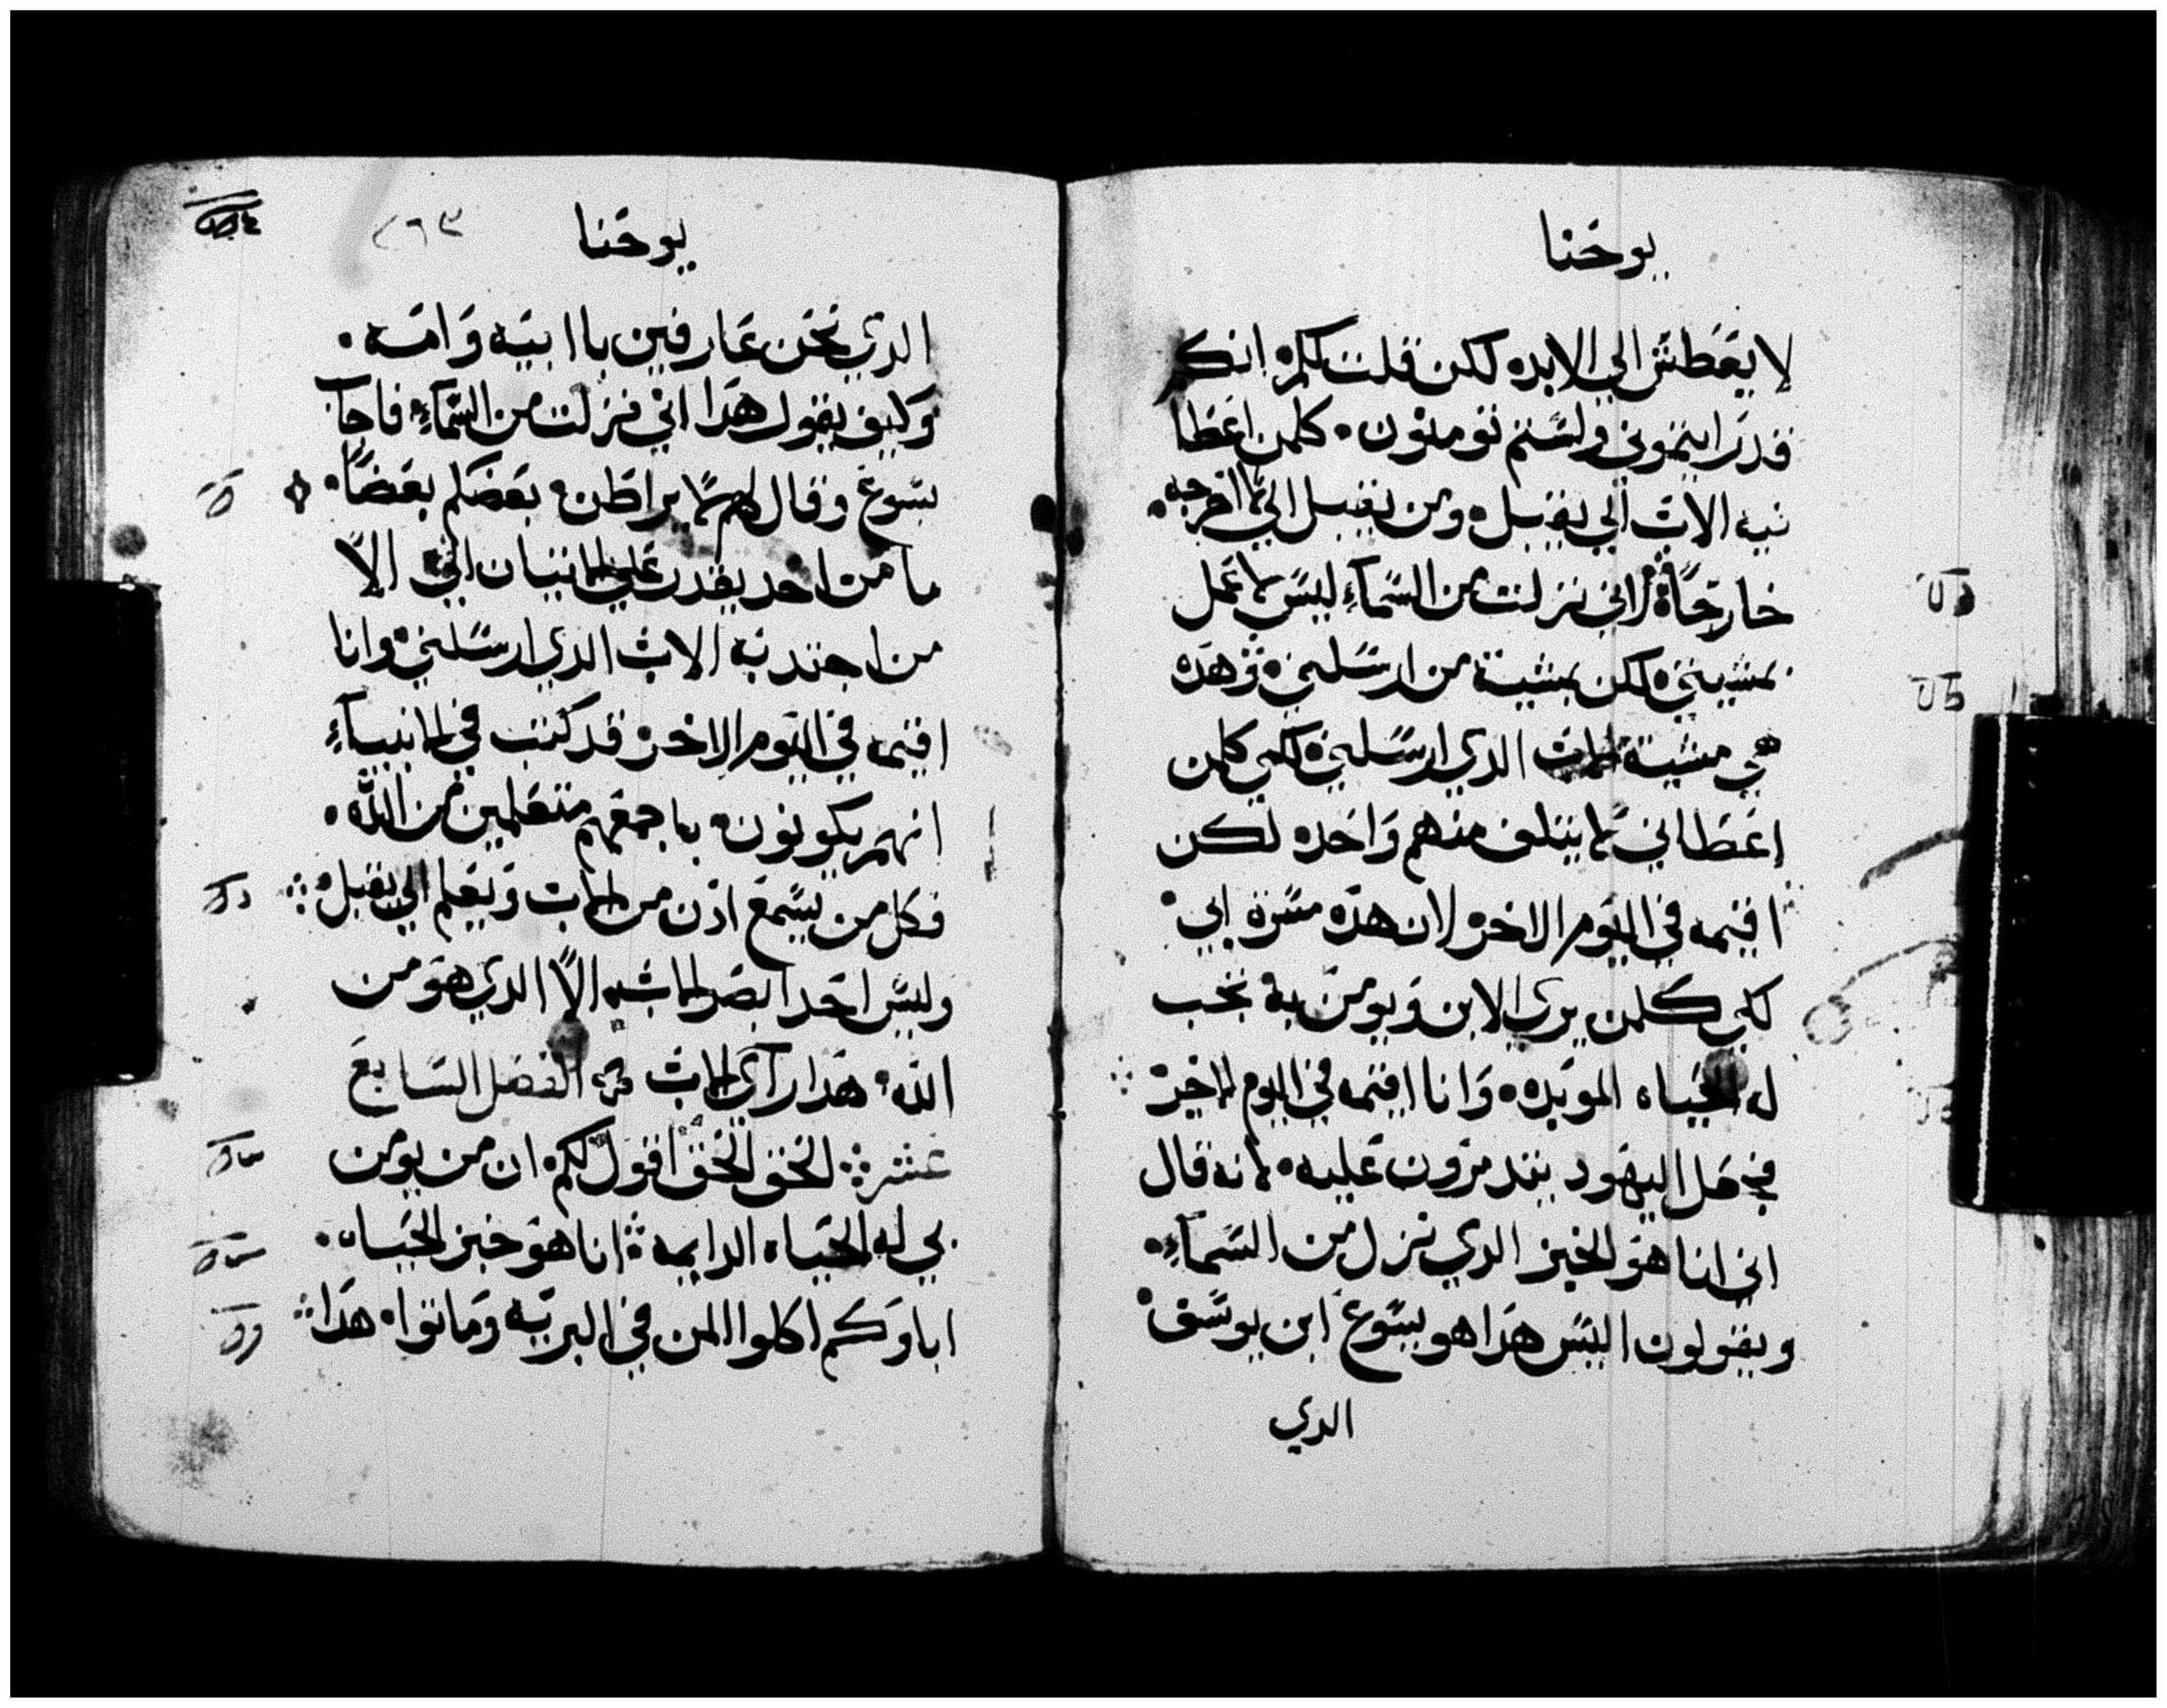 يوحنا
لا يعطش الي الابد لكن قلت لكم انكم
قد رايتموني ولستم تومنون كلمن اعطا
نيه الاب الي يقبل ومن يقبل الي لا اخرجه
خارجًا لاني نزلت من السمآءِ ليس لاعمل
بمشييتي لكن بمشية من ارسلني وهده
هي مشية الاب الدي ارسلني لكي كلمن
اعطاني لا يتلف منهم واحد لكن
اقيمه في اليوم الاخر لان هده مسرة ابي
لكي كلمن يري الابن ويومن به تجب
له الحياه الموبده وانا اقيمه في اليوم الاخير
في هل اليهود يتدمرون عليه لانه قال
اني انا هو الخبز الدي نزل من السمآءِ
ويقولون اليس هدا هو يسوع ابن يوسف
الدي
يوحنا
٢٦٣
الدي نحن عارفين با ابيه وامه
وكيف يقول هدا اني نزلت من السمآءِ فاجاب
يسوع وقال لهم لا يراطن بعضكم بعضًا
ما من احد يقدر علي الاتيان الي الاّ
من اجتدبه الاب الدي ارسلني وانا
اقيمه في اليوم الاخر قد كتب في الانبيآءِ
انهم يكونون باجمعهم متعلمين من الله
فكل من يسمع ادن من الاب ويعلم الي يقبل
وليس احد ابصر الاب الاّ الدي هو من
الله هدا رآي الاب الفصل السابع
عشر الحق الحق اقول لكم ان من يومن
بي له الحياه الدايمه انا هو خبز الحياه
اباوكم اكلوا المن في البريه وماتوا هدا